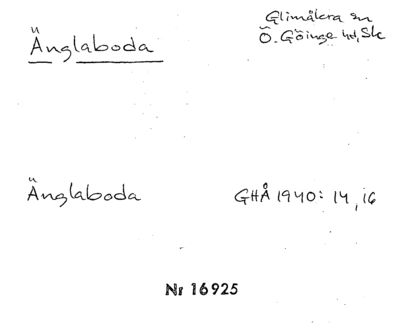 Änglaboda
Glimåkra sn
Ö. Göinge hd, Sk
Änglaboda
GHÅ 1940: 14, 16
Nr 16925